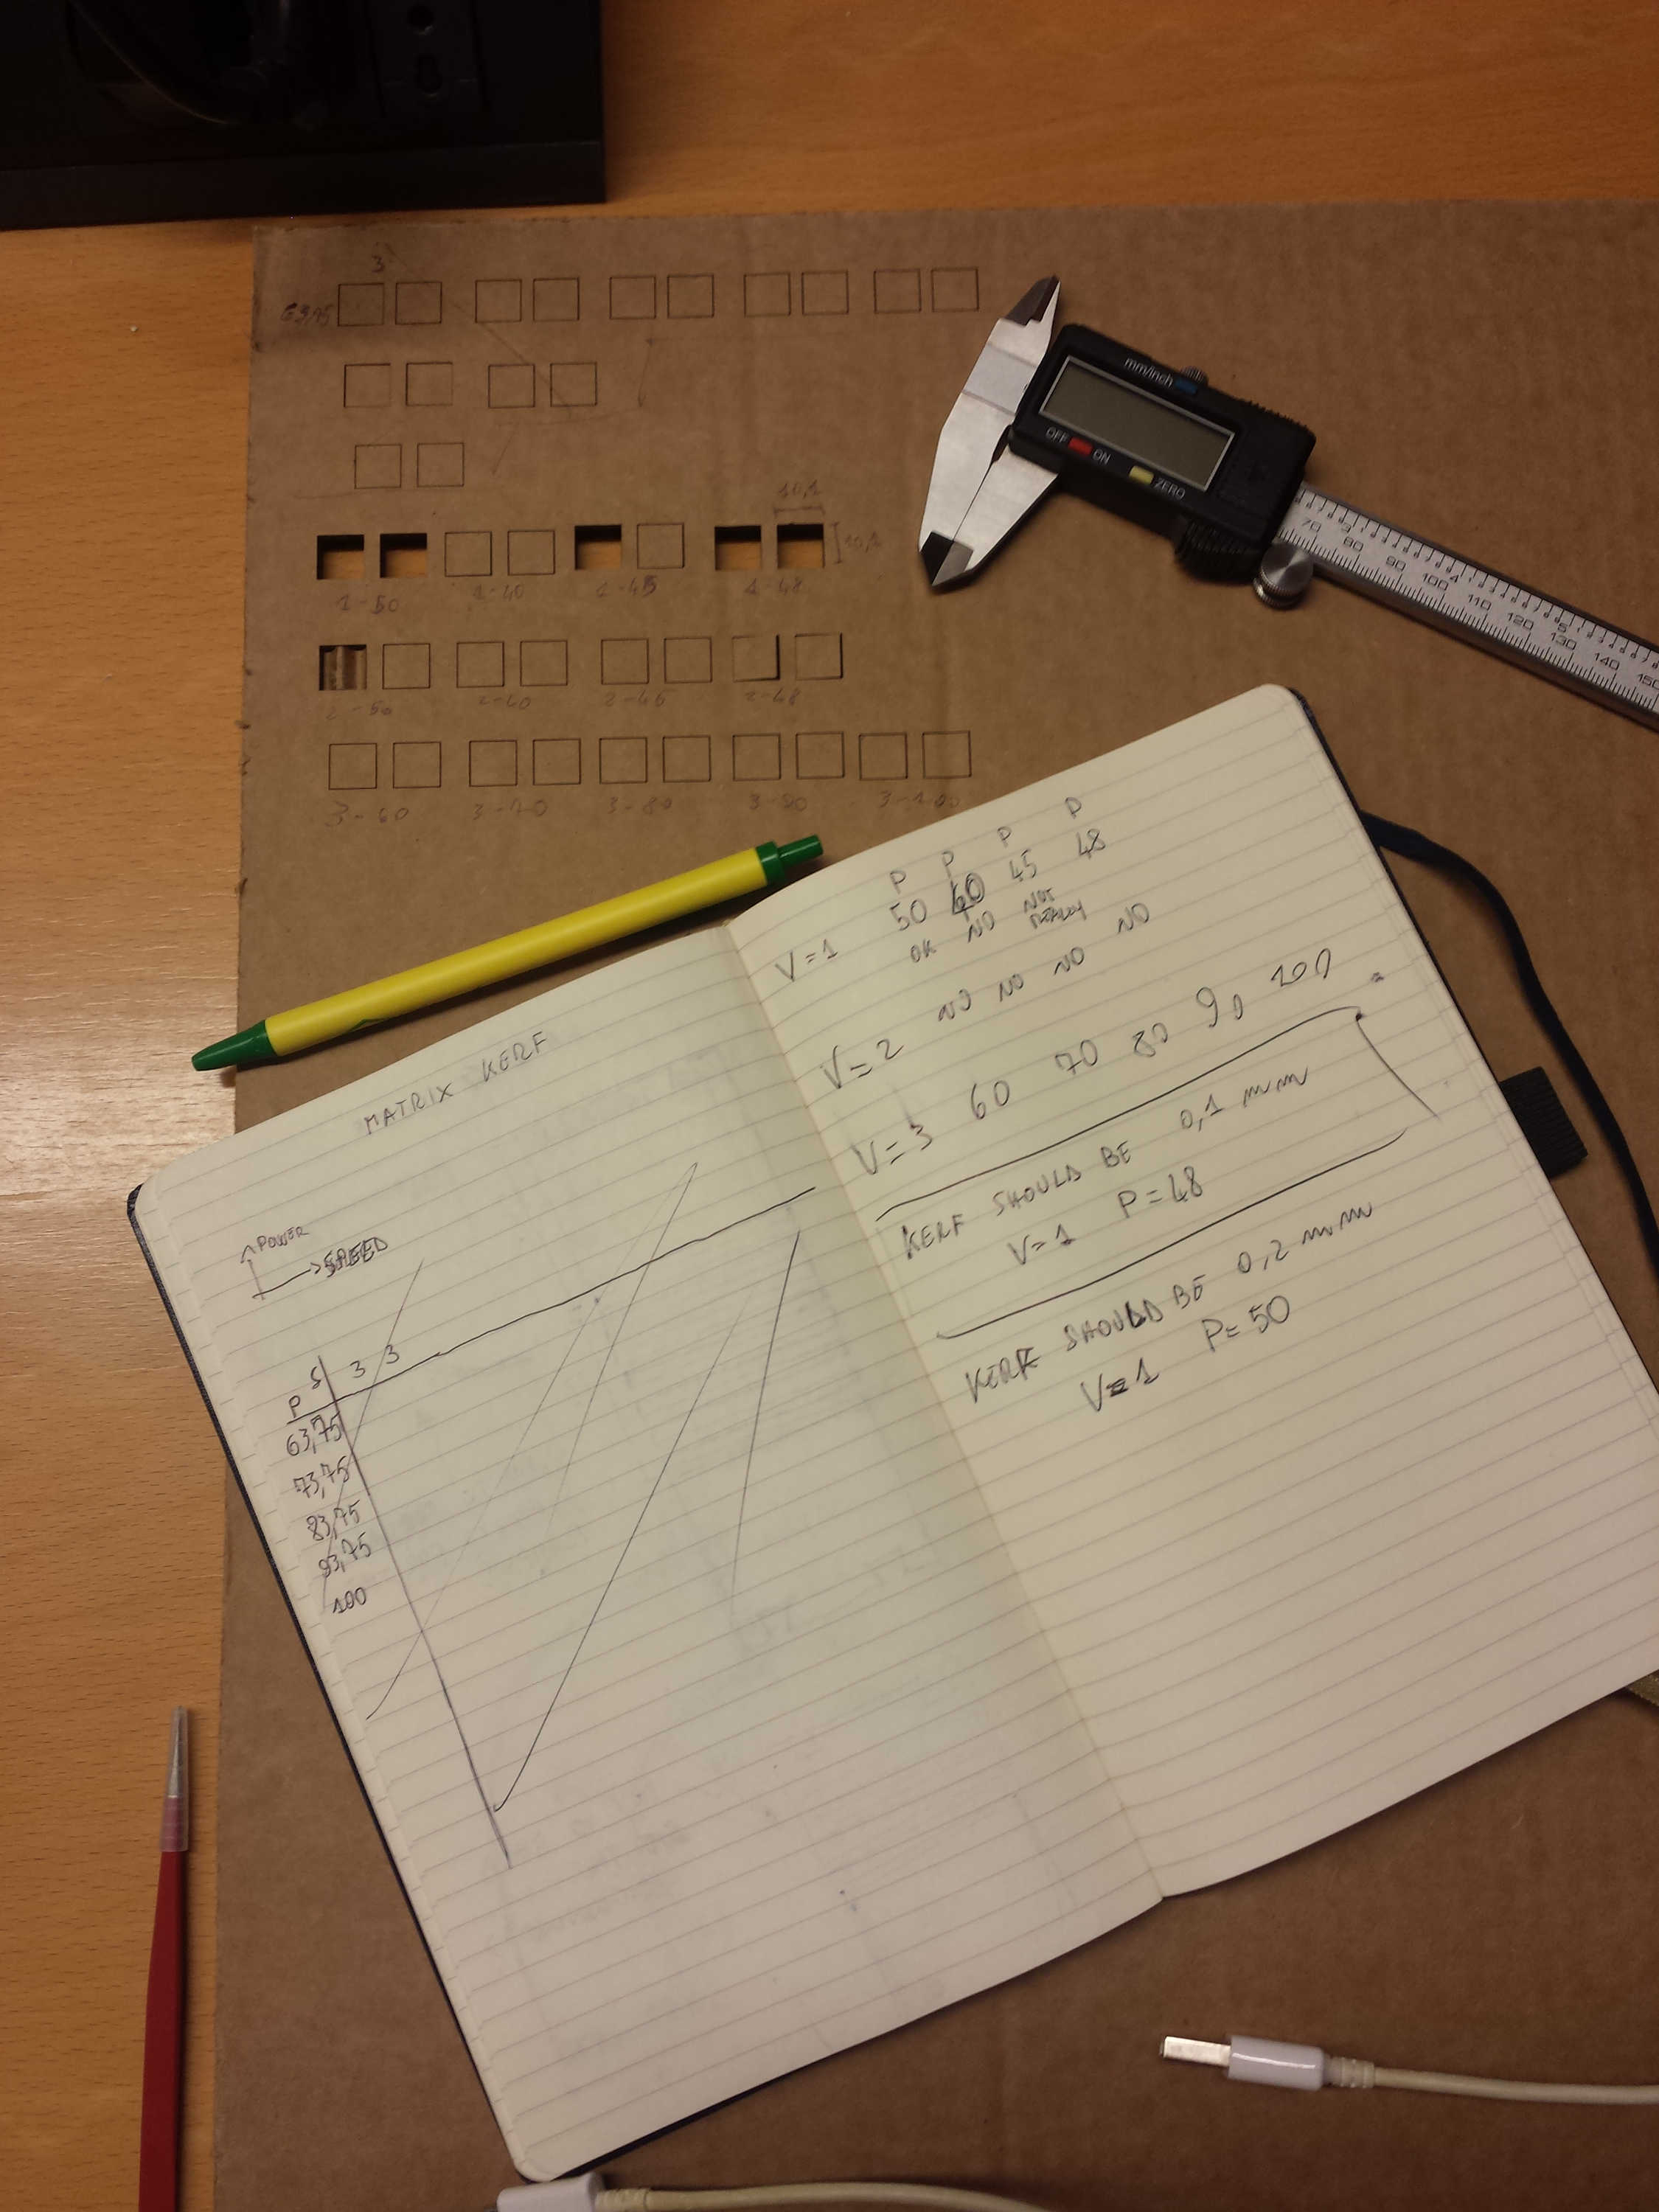 3
63,75
10,1
10,1
1-50 1-40 1-45 1-48
2-50 2-40 2-45 2-48
3-60 3-70 3-80 3-90 3-100
mm/inch
OFF ON ZERO
70 80 90 100 110 120 130 140 150
MATRIX KERF
POWER
SPEED
S 3 3
P
63,75
73,75
83,75
93,75
100
P P P P
50 40 45 48
V=1 OK NO NOT REALLY
V=2 NO NO NO NO
V=3 60 70 80 90 100
KERF SHOULD BE 0,1 mm
V=1 P=48
KERF SHOULD BE 0,2 mm
V=1 P=50